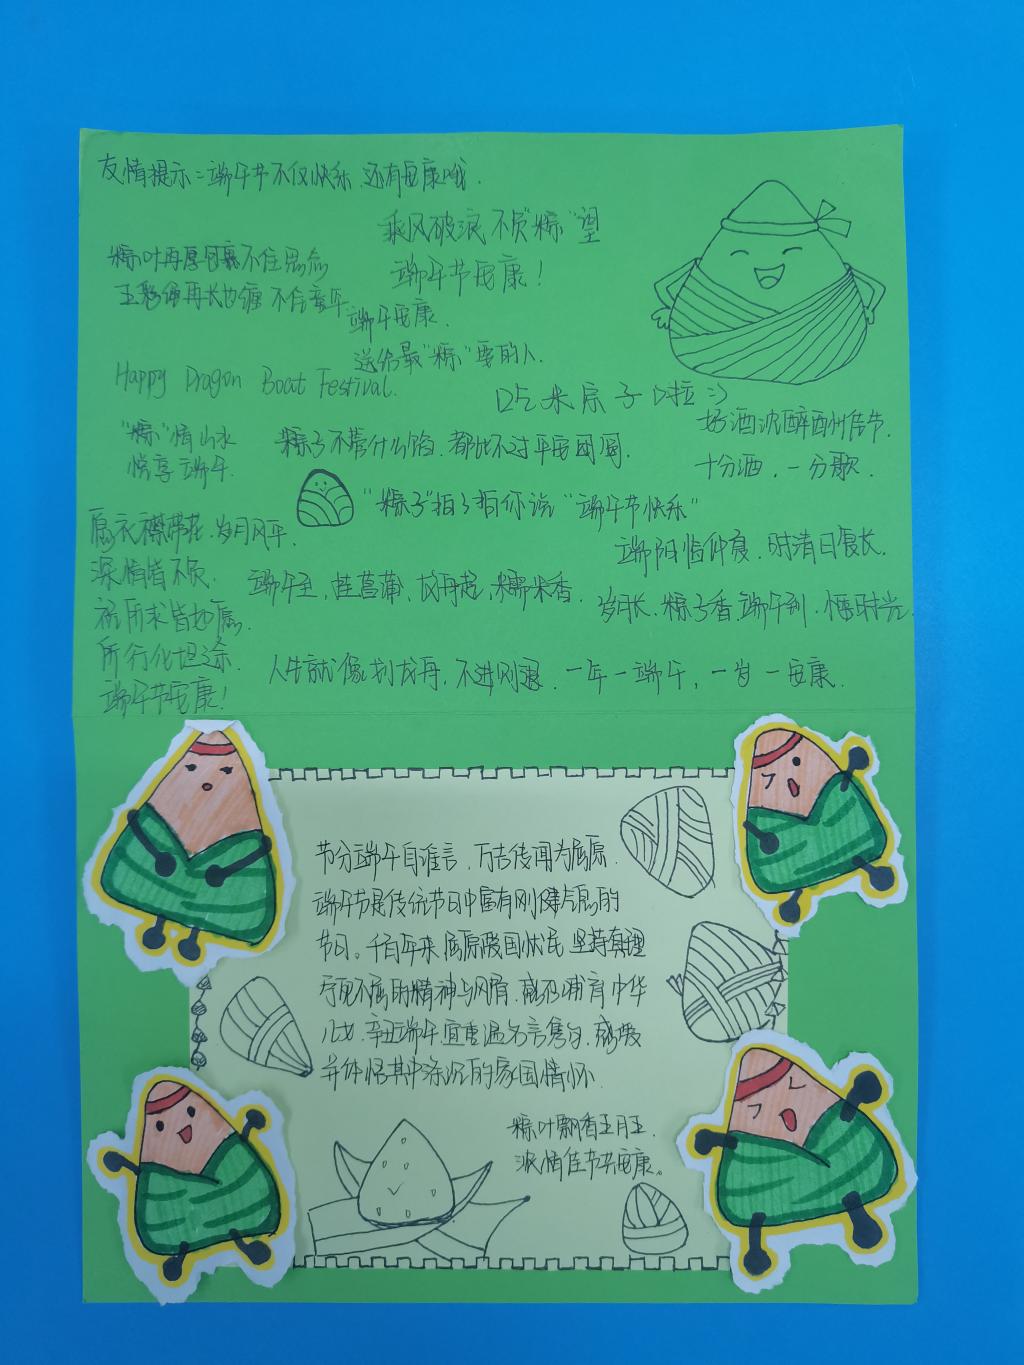 友情提示:端午节不仅快乐,还有安康哦.
乘风破浪 不负"粽"望
端午节安康!
粽叶再厚包裹不住思念
五彩绳再长也缠不住童年
端午安康.
送给最"粽"要的人.
Happy Dragon Boat Festival.
吃米宗子口拉:)
好酒沉醉酬佳节.
十分酒,一分歌.
"粽"情山水
悦享端午.
粽子不管什么馅,都比不过平安团圆.
"粽子"拍了拍你说"端午节快乐"
愿衣襟带花,岁月风平.
深情皆不负.
祝所求皆如愿.
所行化坦途.
端午节安康!
端阳临仲夏,时清日复长.
端午至,挂菖蒲,龙舟起,糯米香.
岁月长,粽子香,端午到,惬时光.
人生就像划龙舟,不进则退,一年一端午,一岁一安康.
节分端午自谁言,万古传闻为屈原.
端午节是传统节日中富有刚健气息的
节日。千百年来,屈原爱国忧民 坚持真理
宁死不屈的精神与风骨,感召哺育中华
儿女,辛丑端午,宜重温名言隽句,感受
并体悟其中深沉的家国情怀.
粽叶飘香五月五.
浓情佳节共安康。